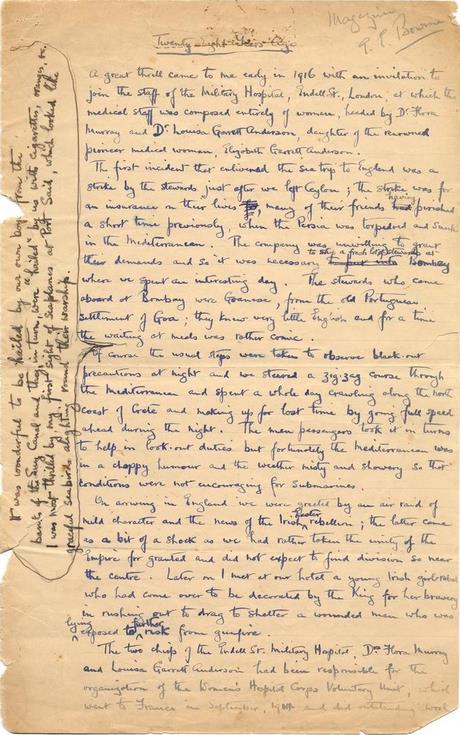 Magazine
Twenty-Eight Years Ago
A great thrill came to me early in 1916 with an invitation to
join the staff of the Military Hospital, Endell St., London, at which the
medical staff was composed entirely of women, headed by Dr Flora
Murray and Dr Louisa Garrett Anderson, daughter of the renowned
pioneer medical woman, Elizabeth Garrett Anderson.
The first incident that enlivened the sea trip to England was a
strike by the stewards just after we left Ceylon; the strike was for
an insurance on their lives, many of their friends having perished
a short time previously, when the Persia was torpedoed and sunk
in the Mediterranean. The company was unwilling to grant
their demands and so it was necessary to ship a fresh lot of stewards at Bombay
where we spent an interesting day. The stewards who came
aboard at Bombay were Goanese, from the old Portuguese
settlement of Goa; they knew very little English and for a time
the waiting at meals was rather comic.
It was wonderful to be hailed by our own boys from the
banks of the Suez Canal and they in turn, were "hailed" by us with cigarettes, oranges, etc.
I was most thrilled by my first sight of seaplanes at Port Said, which looked like
graceful seabirds alighting round their warships.
Of course the usual steps were taken to observe black-out
precautions at night and we steered a zig-zag course through
the Mediterranean and spent a whole day crawling along the north
coast of Crete and making up for lost time by going full speed
ahead during the night. The men passengers took it in turns
to help in look-out duties but fortunately the Mediterranean was
in a choppy humour and the weather misty and showery so that
conditions were not encouraging for submarines.
On arriving in England we were greeted by an air raid of
mild character and the news of the Irish Easter rebellion; the latter came
as a bit of a shock as we had rather taken the unity of the
Empire for granted and did not expect to find division so near
the centre. Later on I met at our hotel a young Irish girl
who had come over to be decorated by the King for her bravery
in rushing out to drag to shelter a wounded man who was
lying exposed to further risk from gunfire.
The two chiefs of the Endell St. Military Hospital, Drs Flora Murray
and Louisa Garrett Anderson had been responsible for the
organization of the Women's Hospital Corps Voluntary Unit, which
went to France in September, 1914 and did outstanding work